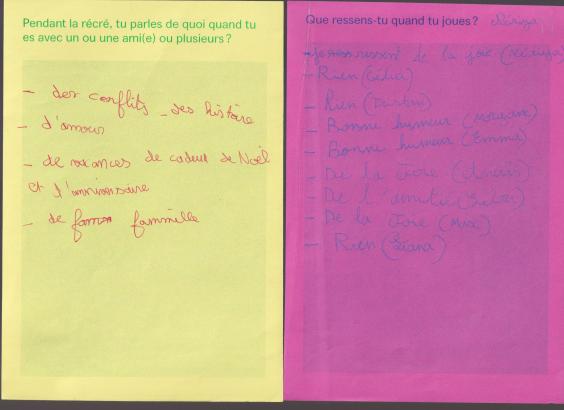 Pendant la récré, tu parles de quoi quand tu
es avec un ou une ami(e) ou plusieurs ?
- des conflits - des histoire
- d'amour
- de vacances de cadeux de Noël
et d'anniversaire
- de fammille
Que ressens-tu quand tu joues ?
- je ressent de la joie
- Rien (Célia)
- Rien
- Bonne humeur
- Bonne humeur (Emma)
- De la Joie
- De l'amitié
- De la Joie (Max)
- Rien